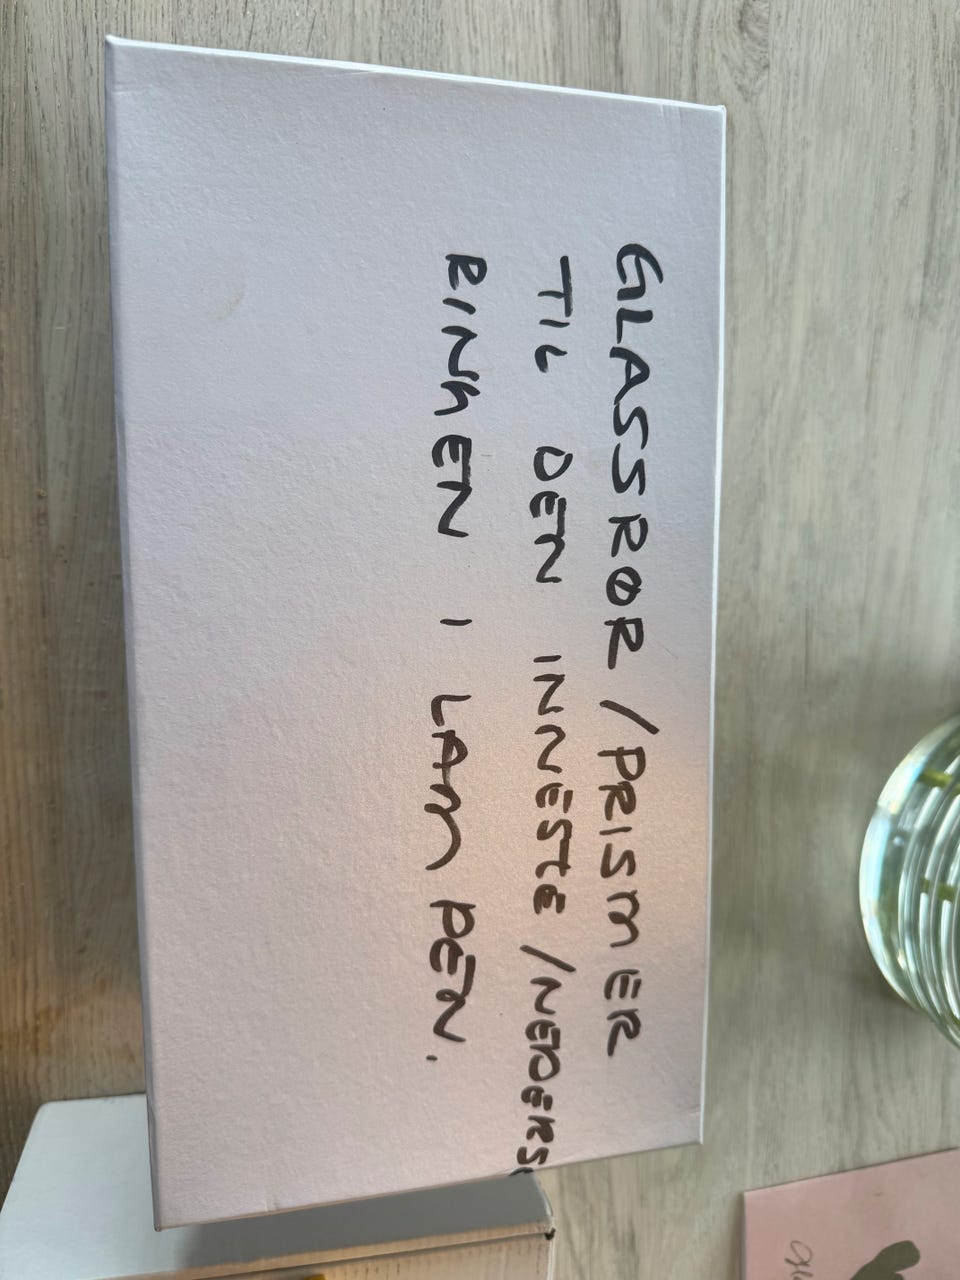 GLASSRØR / PRISMER
TIL DEN INNESTE / NEDERS
RINGEN I LAMPEN.